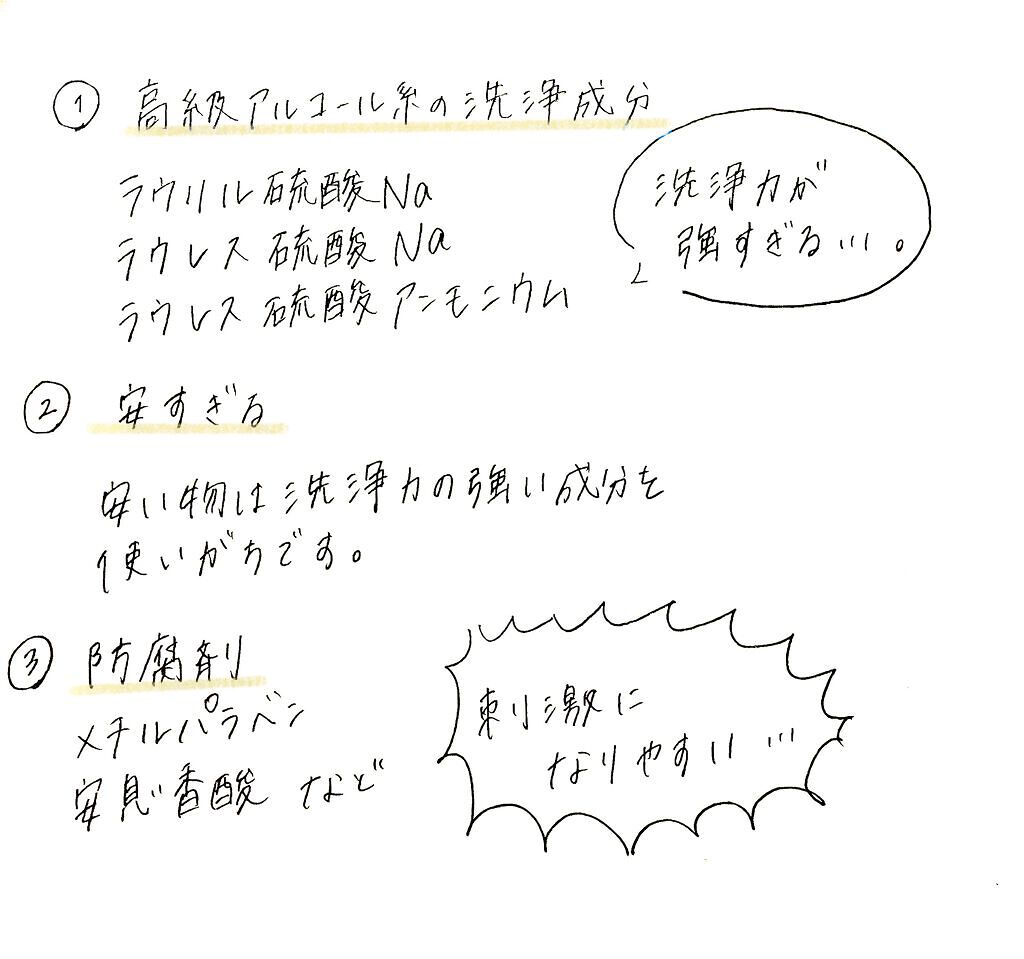 ① 高級アルコール系の洗浄成分
ラウリル硫酸Na
ラウレス硫酸Na
ラウレス硫酸アンモニウム
洗浄力が
強すぎる…。
② 安すぎる
安い物は洗浄力の強い成分を
使いがちです。
③ 防腐剤
メチルパラベン
安息香酸 など
刺激に
なりやすい…